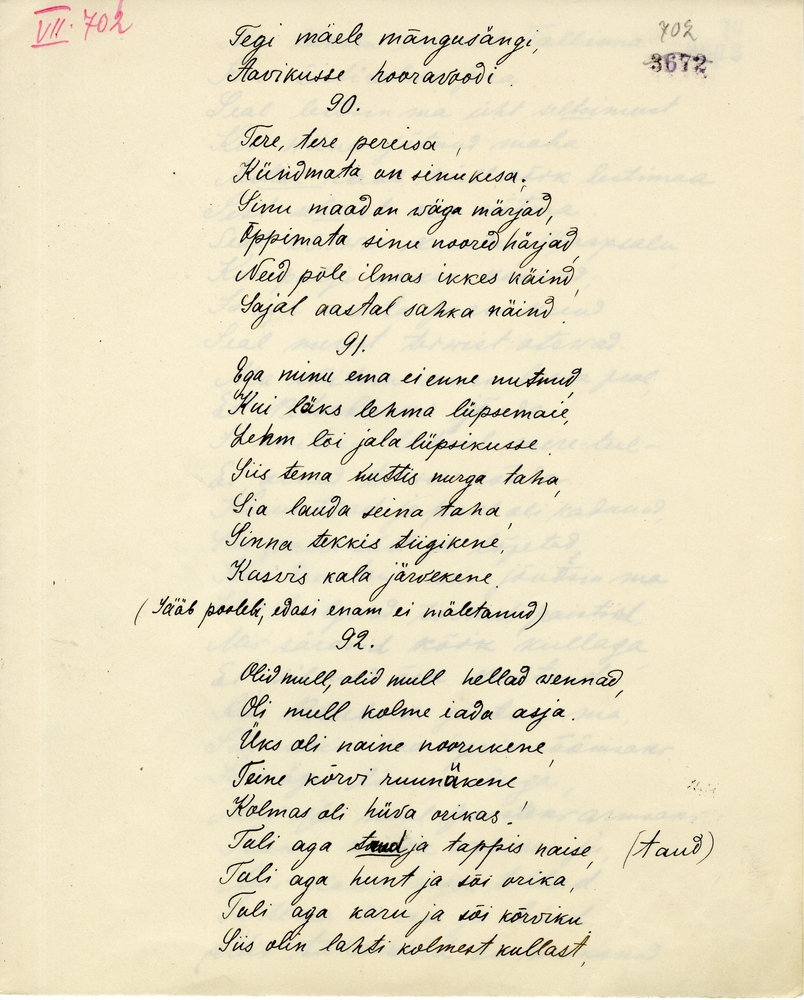 VII. 702
702
3672
Tegi mäele mängusängi,
Aavikusse hooravoodi.
90.
Tere, tere pereisa,
Kündmata on sinu kesa;
Sinu maad on wäga märjad,
Õppimata sinu noored härjad,
Need põle ilmas ikkes käind,
Sajal aastal sahka näind.
91.
Ega minu ema ei enne nutnud,
Kui läks lehma lüpsemaie,
Lehm lõi jala lüpsikusse.
Siis tema nuttis nurga taha,
Sia lauda seina taha,
Sinna tekkis tiigikene,
Kasvis kala järwekene.
(Jääb pooleli, edasi enam ei mäletanud)
92.
Olid mull, olid mull hellad wennad,
Oli mull kolme iada asja.
Üks oli naine noorukene,
Teine kõrvi ruunäkene
Kolmas oli hüva orikas!
Tuli aga taud ja tappis naise, (taud)
Tuli aga hunt ja sõi orika,
Tuli aga karu ja sõi kõrviku
Siis olin lahti kolmest kullast,